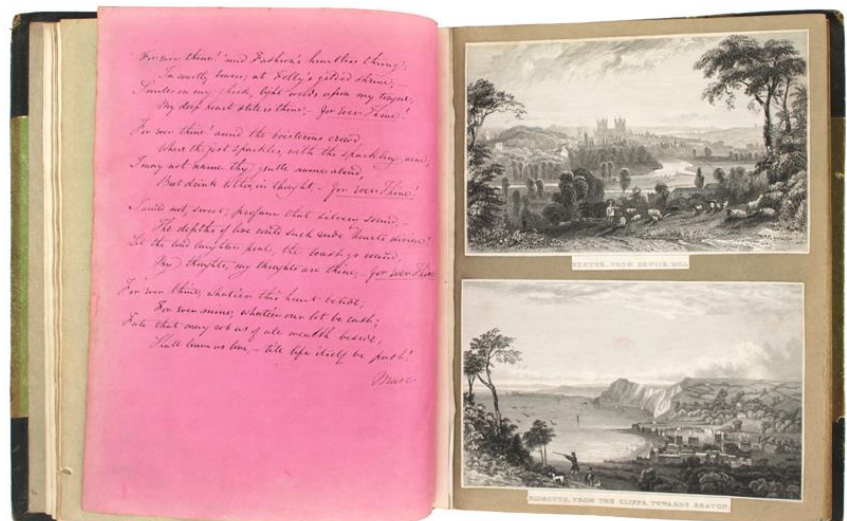 For ever thine! 'mid Fashion's heartless throng;
In courtly bowers; at Folly's gilded shrine, –
Smiles on my cheek, light words upon my tongue,
My deep heart still is thine, – for ever Thine!
For ever thine! amid the boisterous crowd,
Where the jest sparkles, with the sparkling wine,
I may not name thy gentle name aloud,
But drink to thee in thought, – for ever Thine!
I would not, sweet, profane that silvery sound, –
The depths of love could such rude hearts divine?
Let the loud laughter peal, the toast go round,
My thoughts, my thoughts are thine, – for ever Thine
For ever thine, whate'er this heart betide;
For ever mine, whate'er our lot be cast;
Fate that may rob us of all wealth beside,
Shall leave us love, – till life itself be past!
EXETER, FROM EXWICK HILL
SIDMOUTH, FROM THE CLIFFS, TOWARDS SEATON